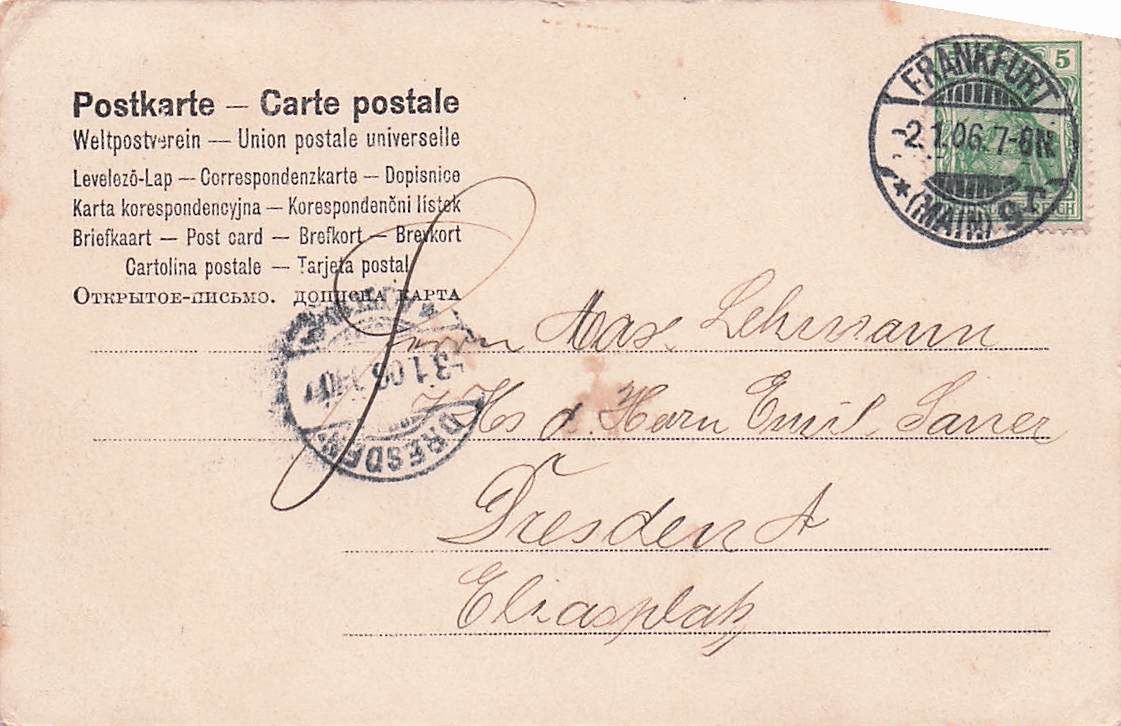 Postkarte — Carte postale
Weltpostverein — Union postale universelle
Levelező-Lap — Correspondenzkarte — Dopisnice
Karta korespondencyjna — Korespondenční lístek
Briefkaart — Post card — Brefkort — Brevkort
Cartolina postale — Tarjeta postal
Открытое-письмо. КАРТА
5
FRANKFURT
2.1.06.7-8N.
*(MAIN) 9
REICH
Herrn Max Lehmann
d. Herrn Emil Sauer
Dresden A
Eliasplatz
3 1 06
DRESDEN